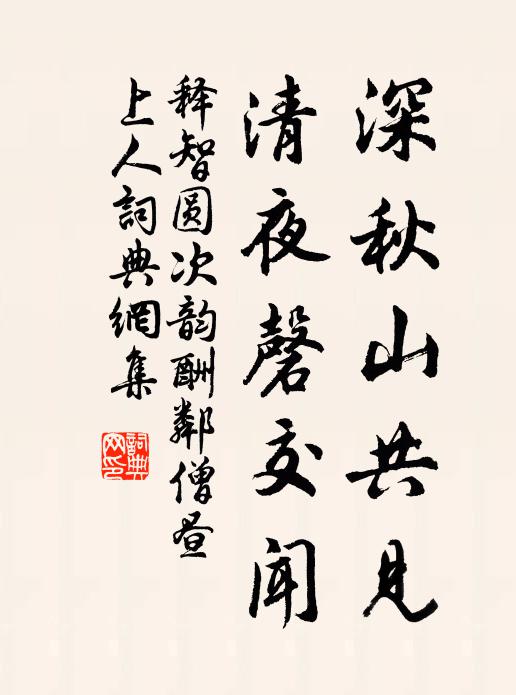 深秋山共見
清夜磬交聞
释智圆次韵酬鄰僧昼
上人詞典網集
詞典
网印